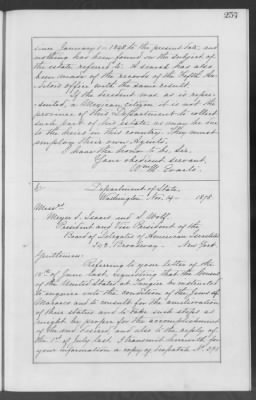 257
since January 1 - 1848 to the present date, and
nothing has been found on the subject of
the estate referred to. A search has also
been made of the records of the Fifth Au-
ditor's office with the same result.
If the decedent was as is repre-
sented, a Mexican citizen it is not the
province of this Department to collect
such part of his estate as may be due
to the heirs in this country. They must
employ their own Agents.
I have the honor to be, Sir,
Your obedient servant,
Wm M. Evarts.
Department of State,
Washington, Nov. 14 - 1878.
Messrs
Meyer S. Isaacs and S. Wolf,
President and Vice President of the
Board of Delegates of American Israelites
Broadway - New York.
Gentlemen:
Referring to your letter of the
of June last, requesting that the Consul
of the United States at Tangier be instructed
to enquire into the condition of the Jews of
Morocco and to consult for the amelioration
of their status and to take such steps as
might be proper for the accomplishment
of the end desired, and also to the reply of
the 1st of July last I transmit herewith for
your information a copy of Despatch No.